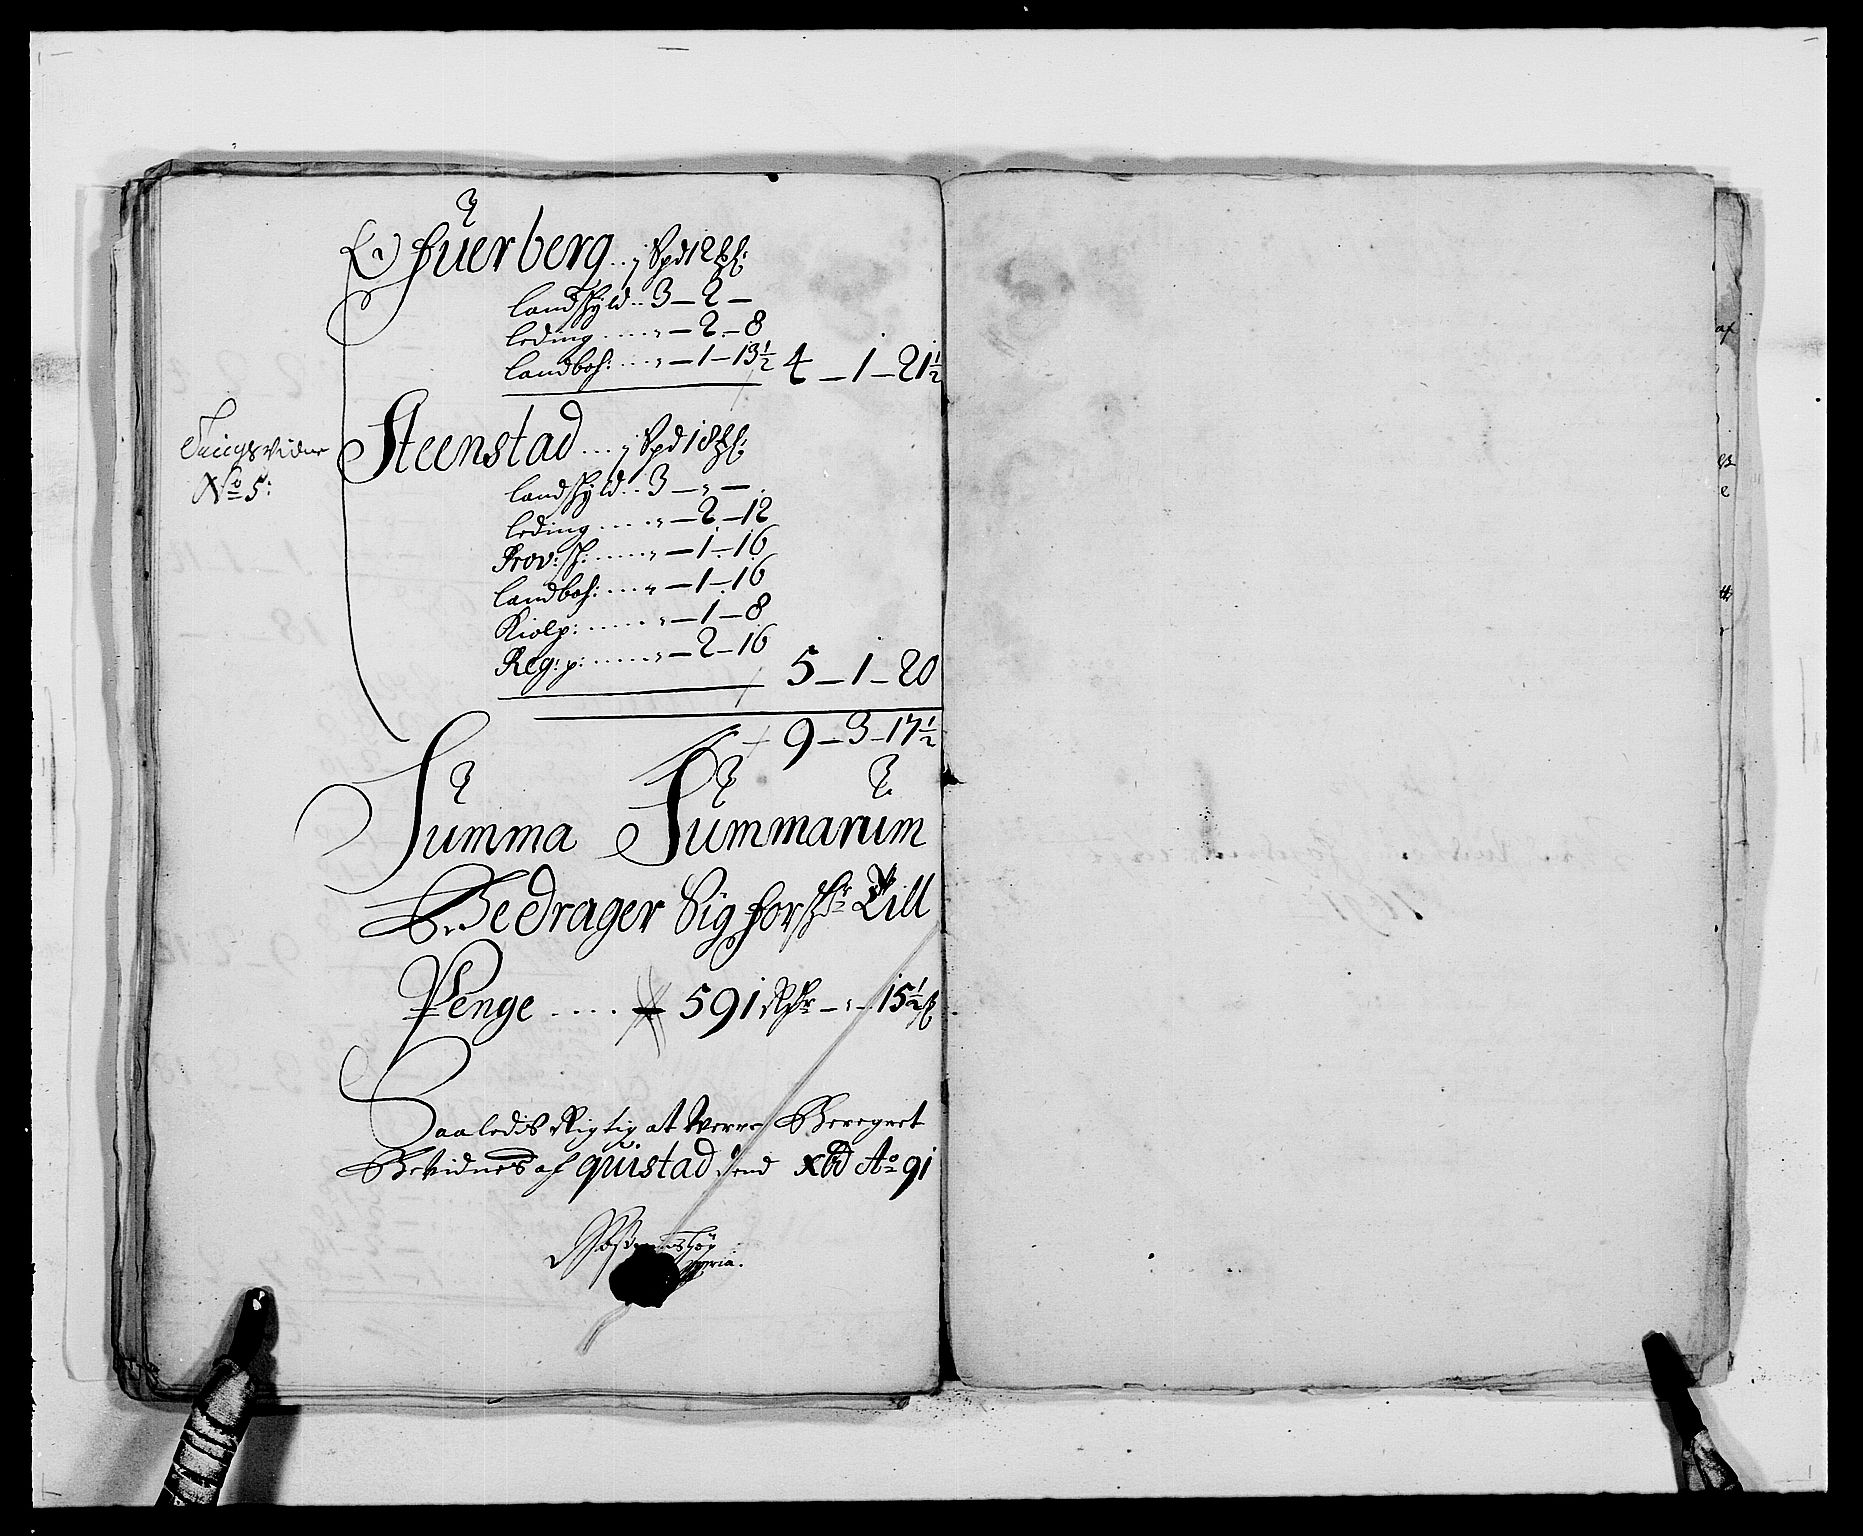 Huerberg .. ,, Spd 12 ß:
landskyld .. 3 – 2 –
leding ..... ,, – 2 – 8
landboh: .... ,, – 1 – 13½ 4 – 1 – 21½
Tingsvidne
No 5:
Steenstad .... ,, Spd 18 ß:
landskyld .. 3 – ,, –
leding ..... ,, – 2 – 12
Prov: sk: ..... ,, – 1 – 16
landboh: .... ,, – 1 – 16
Kiolp: ...... ,, – 1 – 8
Reg: p: ...... ,, – 2 – 16
5 – 1 – 20
9 – 3 – 17½
Summa Summarum
Bedrager Sig forskr: Till
Penge ..... 591 Rdr – ,, – 15½ ß
Saaledis Rigtig at Were Beregnet
Bevidnes af quistad Dend xbd Ao 91